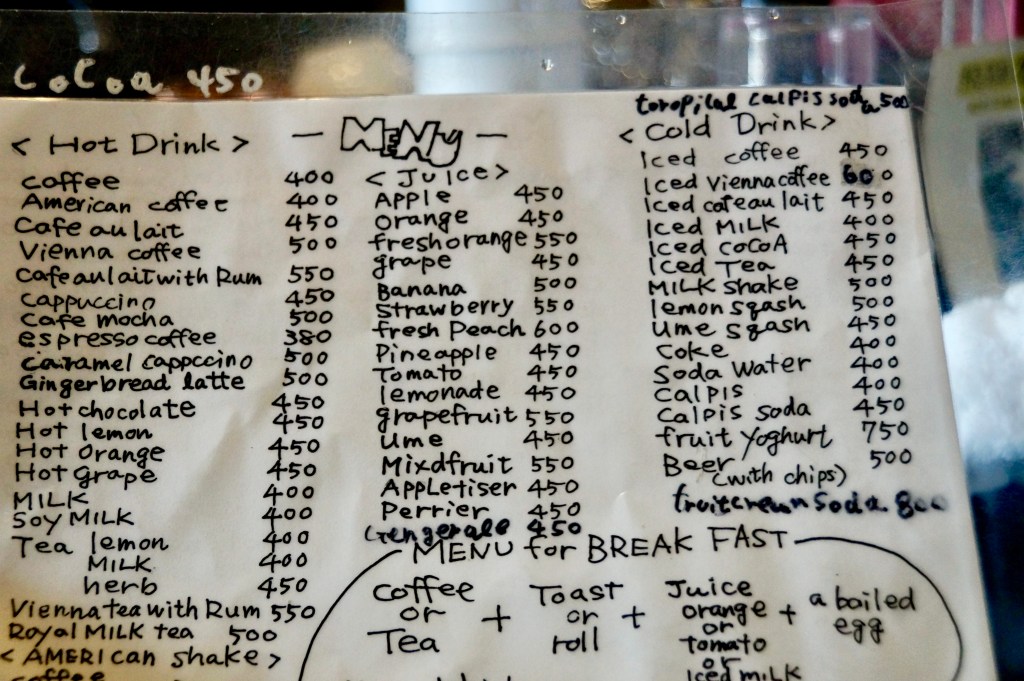 Cocoa 450
— MENy —
< Hot Drink >
coffee 400
American coffee 400
Cafe au lait 450
Vienna coffee 500
Cafe au lait with Rum 550
cappuccino 450
Cafe mocha 500
espresso coffee 380
caramel cappccino 500
Gingerbread latte 500
Hot chocolate 450
Hot lemon 450
Hot orange 450
Hot grape 450
MILK 400
Soy MILK 400
Tea lemon 400
MILK 400
herb 450
Vienna tea with Rum 550
Royal MILK tea 500
< AMERICAN shake >
coffee
< JUICE >
APPLE 450
orange 450
fresh orange 550
grape 450
Banana 500
Strawberry 550
fresh Peach 600
Pineapple 450
Tomato 450
lemonade 450
grapefruit 550
Ume 450
Mixdfruit 550
APPLetiser 450
Perrier 450
Gengerale 450
toropilal calpis soda 500
< Cold Drink >
Iced coffee 450
Iced Vienna coffee 600
Iced cafe au lait 450
Iced MILK 400
Iced COCOA 450
Iced Tea 450
MILK shake 500
lemon sqash 500
Ume sqash 450
Coke 400
Soda Water 400
Calpis 400
Calpis soda 450
fruit yoghurt 750
Beer 500
(with chips)
fruit cream Soda 800
MENU for BREAK FAST
Coffee or Tea + Toast or roll + Juice orange or tomato or Iced milk + a boiled egg